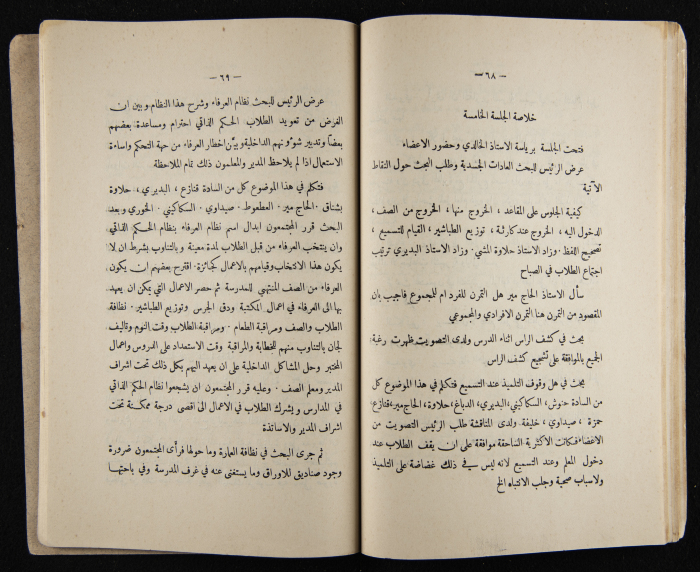 — ٦٨ —
خلاصة الجلسة الخامسة
فتحت الجلسة برياسة الاستاذ الخالدي وحضور الاعضاء
عرض الرئيس للبحث العادات الجسدية وطلب البحث حول النقاط
الآتية
كيفية الجلوس على المقاعد ، الخروج منها ، الخروج من الصف ،
الدخول اليه ، الخروج عند كارثة ، توزيع الطباشير ، القيام للتسميع ،
تصحيح اللفظ . وزاد الاستاذ حلاوة المشي . وزاد الاستاذ البديري ترتيب
اجتماع الطلاب في الصباح
سأل الاستاذ الحاج مير هل التمرن للفرد ام للمجموع فاجيب بان
المقصود من التمرن هنا التمرن الافرادي والمجموعي
بحث في كشف الراس اثناء الدرس ولدى التصويت ظهرت رغبة
الجميع بالموافقة على تشجيع كشف الراس
بحث في هل وقوف التلميذ عند التسميع فتكلم في هذا الموضوع كل
من السادة حنوش ، السكاكيني ، البديري ، الدباغ ، حلاوة ، الحاج مير ، قنازع
حمزة ، صيداوي ، خليفة . ولدى المناقشة طلب الرئيس التصويت من
الاعضاء فكانت الاكثرية الساحقة موافقة على ان يقف الطلاب عند
دخول المعلم وعند التسميع لانه ليس في ذلك غضاضة على التلميذ
ولاسباب صحية وجلب الانتباه الخ
— ٦٩ —
عرض الرئيس للبحث نظام العرفاء وشرح هذا النظام وبين ان
الغرض من تعويد الطلاب الحكم الذاتي احترام ومساعدة بعضهم
بعضا وتدبير شؤونهم الداخلية وبين اخطار العرفاء من جهة التحكم واساءة
الاستعمال اذا لم يلاحظ المدير والمعلمون ذلك تمام الملاحظة
فتكلم في هذا الموضوع كل من السادة قنازع ، البديري ، حلاوة
بشناق . الحاج مير . العطعوط . صيداوي . السكاكيني . الخوري وبعد
البحث قرر المجتمعون ابدال اسم نظام العرفاء بنظام الحكم الذاتي
وان ينتخب العرفاء من قبل الطلاب لمدة معينة وبالتناوب بشرط ان لا
يكون هذا الانتخاب وقيامهم بالاعمال كجائزة . اقترح بعضهم ان يكون
العرفاء من الصف المنتهي للمدرسة ثم حصر الاعمال التي يمكن ان يعهد
بها الى العرفاء في اعمال المكتبة ودق الجرس وتوزيع الطباشير . نظافة
الطلاب والصف ومراقبة الطعام . ومراقبة الطلاب وقت النوم وتاليف
لجان بالتناوب منهم للخطابة والمراقبة وقت الاستعداد على الدروس واعمال
المختبر وحل المشاكل الداخلية على ان يعهد اليهم بكل ذلك تحت اشراف
المدير ومعلم الصف . وعليه قرر المجتمعون ان يشجعوا نظام الحكم الذاتي
في المدارس ويشرك الطلاب في الاعمال الى اقصى درجة ممكنة تحت
اشراف المدير والاساتذة
ثم جرى البحث في نظافة العمارة وما حولها فرأى المجتمعون ضرورة
وجود صناديق للاوراق وما يستغنى عنه في غرف المدرسة وفي باحتها